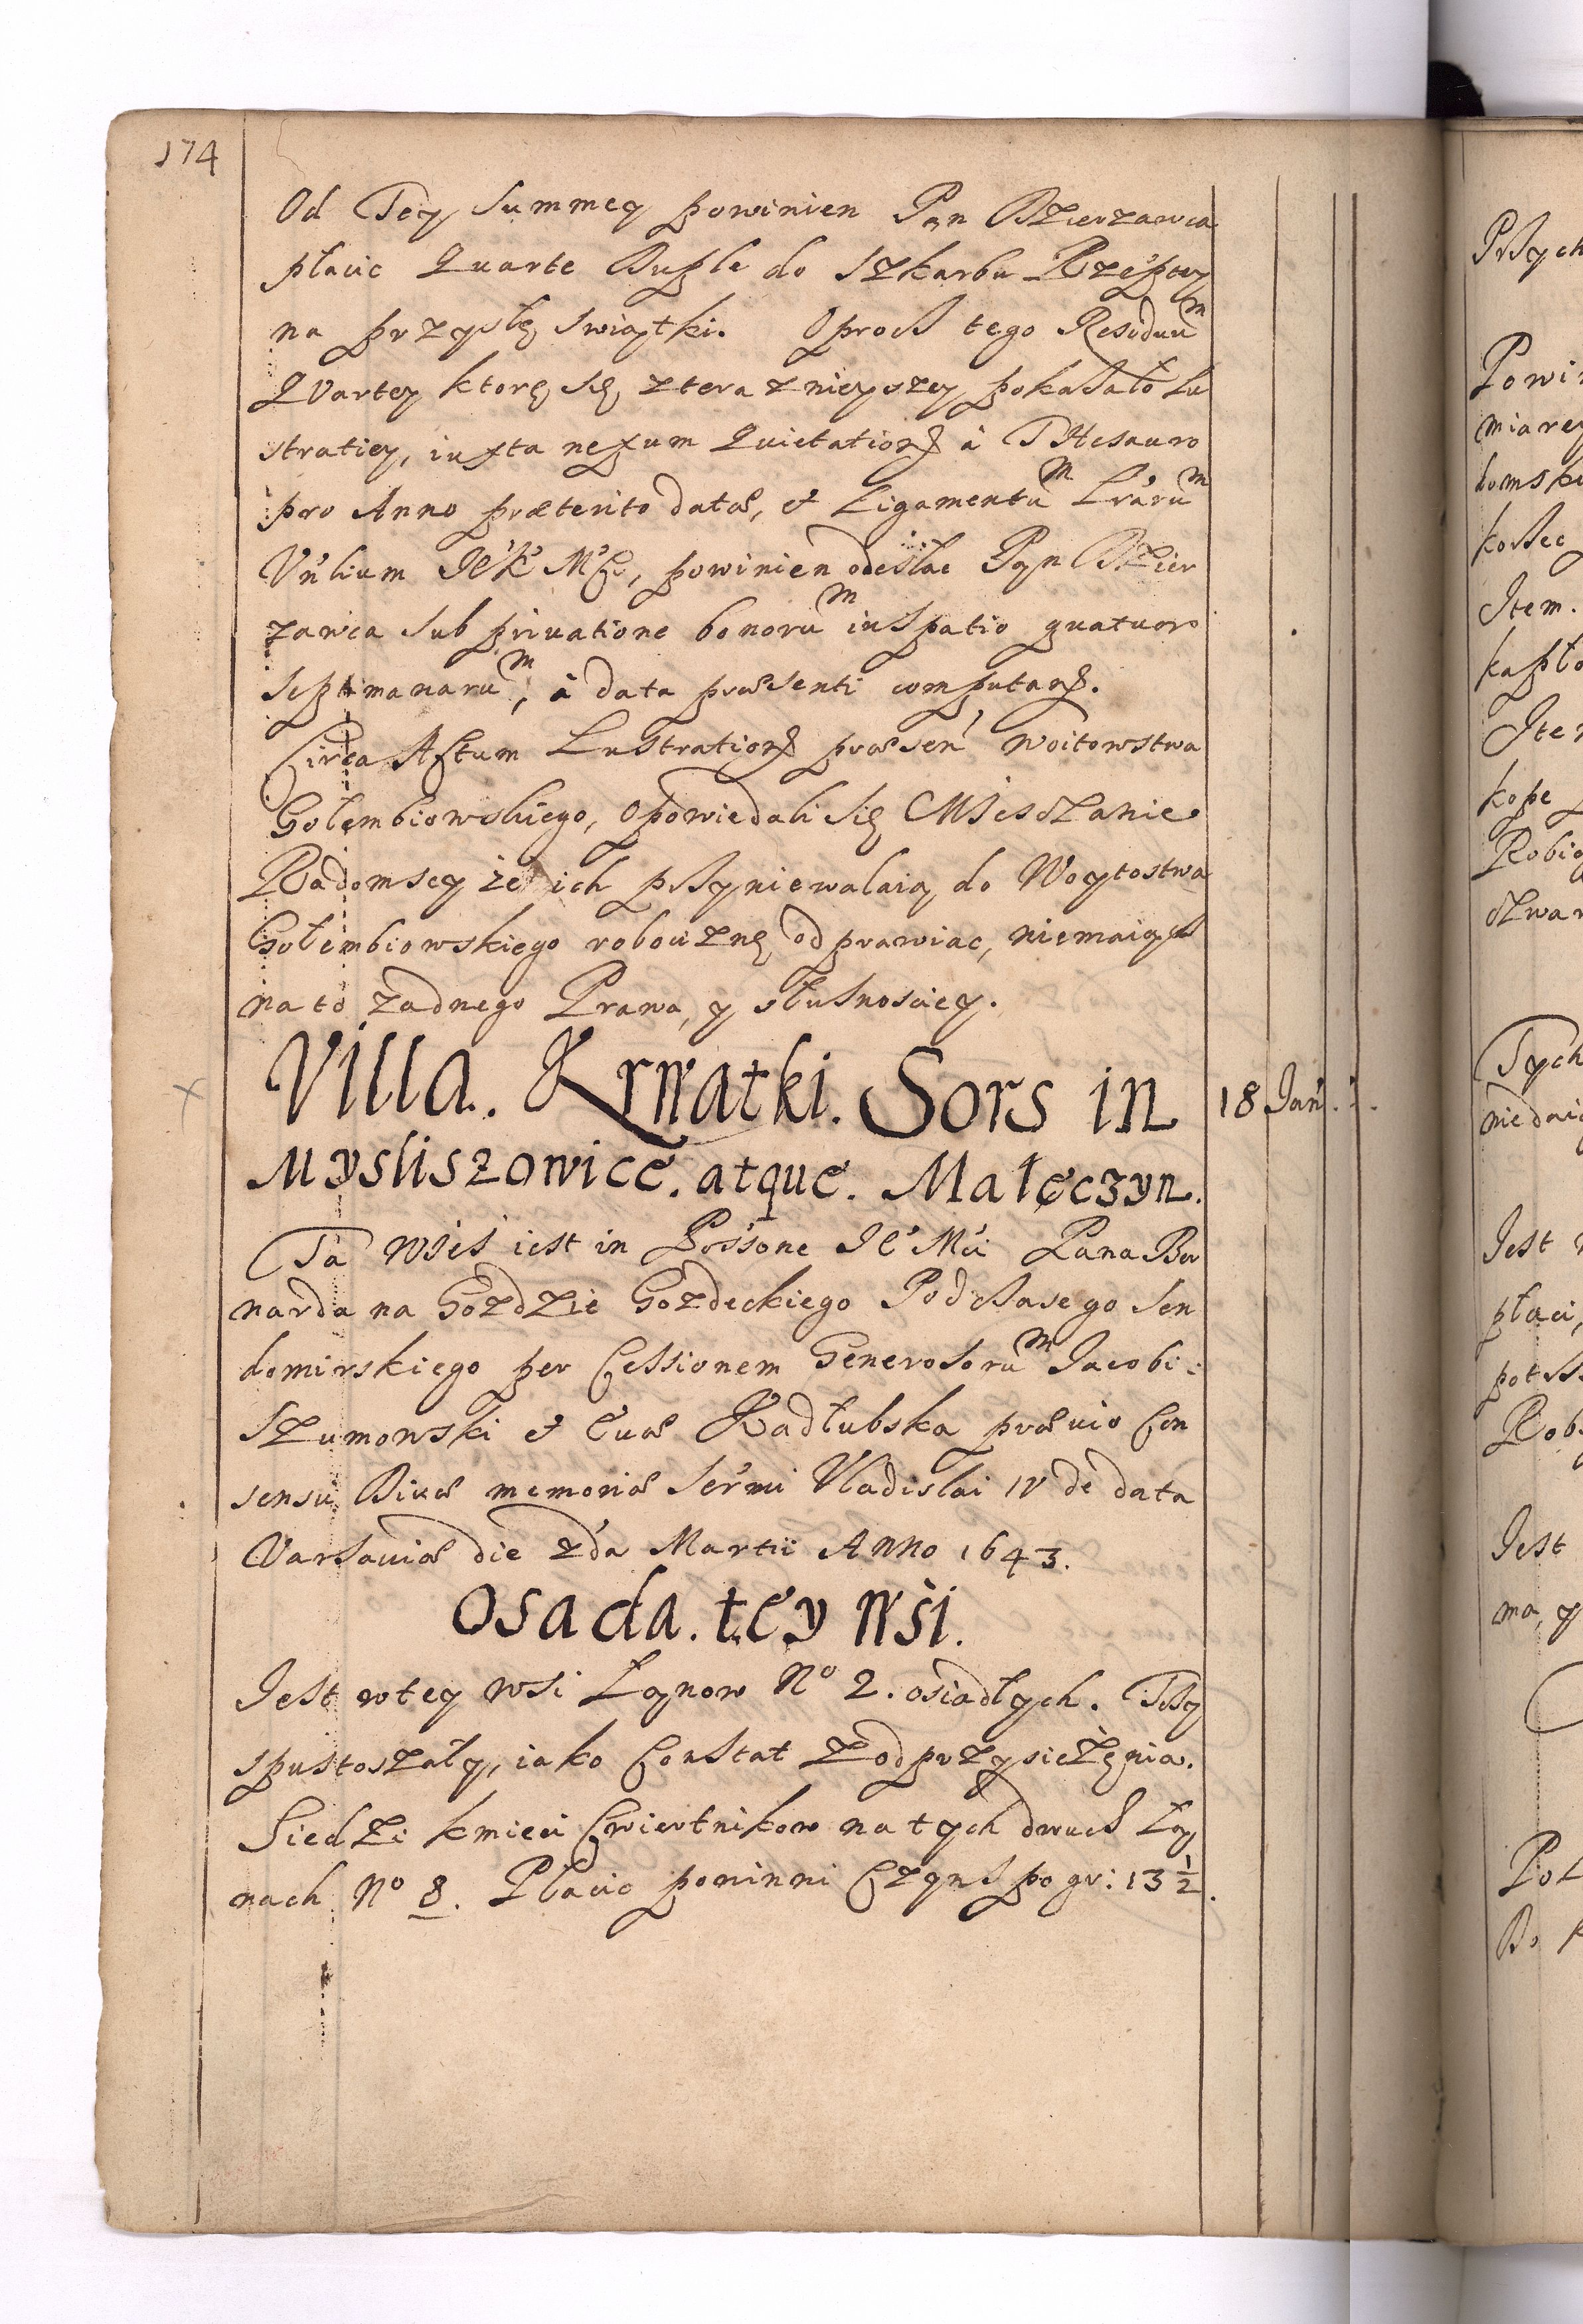 174
Od Tey Summey powinien Pan Dzierzawca
płacic Quarte Duple do Szkarbu Rzeptey
na przyszłę Swiątki. Oprocz tego Residuum
Quartey ktorę się zteraznieyszey pokazało Lu
stratiey, iuxta nexum Quietationis à THesauro
pro Anno præterito datæ, et Ligamentum Lr̃arum
Vñlium Je K Mci, powinien odesłac Pan Dzier
zawca sub priuatione bonorum in spatio quatuor
septimanarum, à data præsenti computan.
Circa Actum Lustrationis præsen Woitowstwa
Gołembiowskiego, opowiedali się Miesczanie
Radomscy że ich przyniewalaią do Woytostwa
Gołembiowskiego robociznę odprawiac, niemaiąc
na to zadnego Prawa, y słusnosciey.
Villa. Krwatki. Sors in
Mysliszowice. atque. Małęczyn.
18 Jan.
Ta wies iest in Possone Je Mci Pana Ber
narda na Gozdzie Gozdeckiego Podczasego Sen
domirskiego per Cessionem Generosorum Jacobi
Szumowski et Euæ Kadłubska præuio Con
sensu Diuæ memoriæ Sermi Vladislai IV de data
Varsauiæ die 2da Martii Anno 1643.
Osada. tey wsi.
Jest w tey wsi Łanow No 2. osiadłych. Trzy
spustoszały, iako Constat z odprzysiężenia.
Siedzi kmieci Cwiertnikow na tych dwuch Ła
nach No 8. Płacic powinni Czynsz po gr: 13 ½.